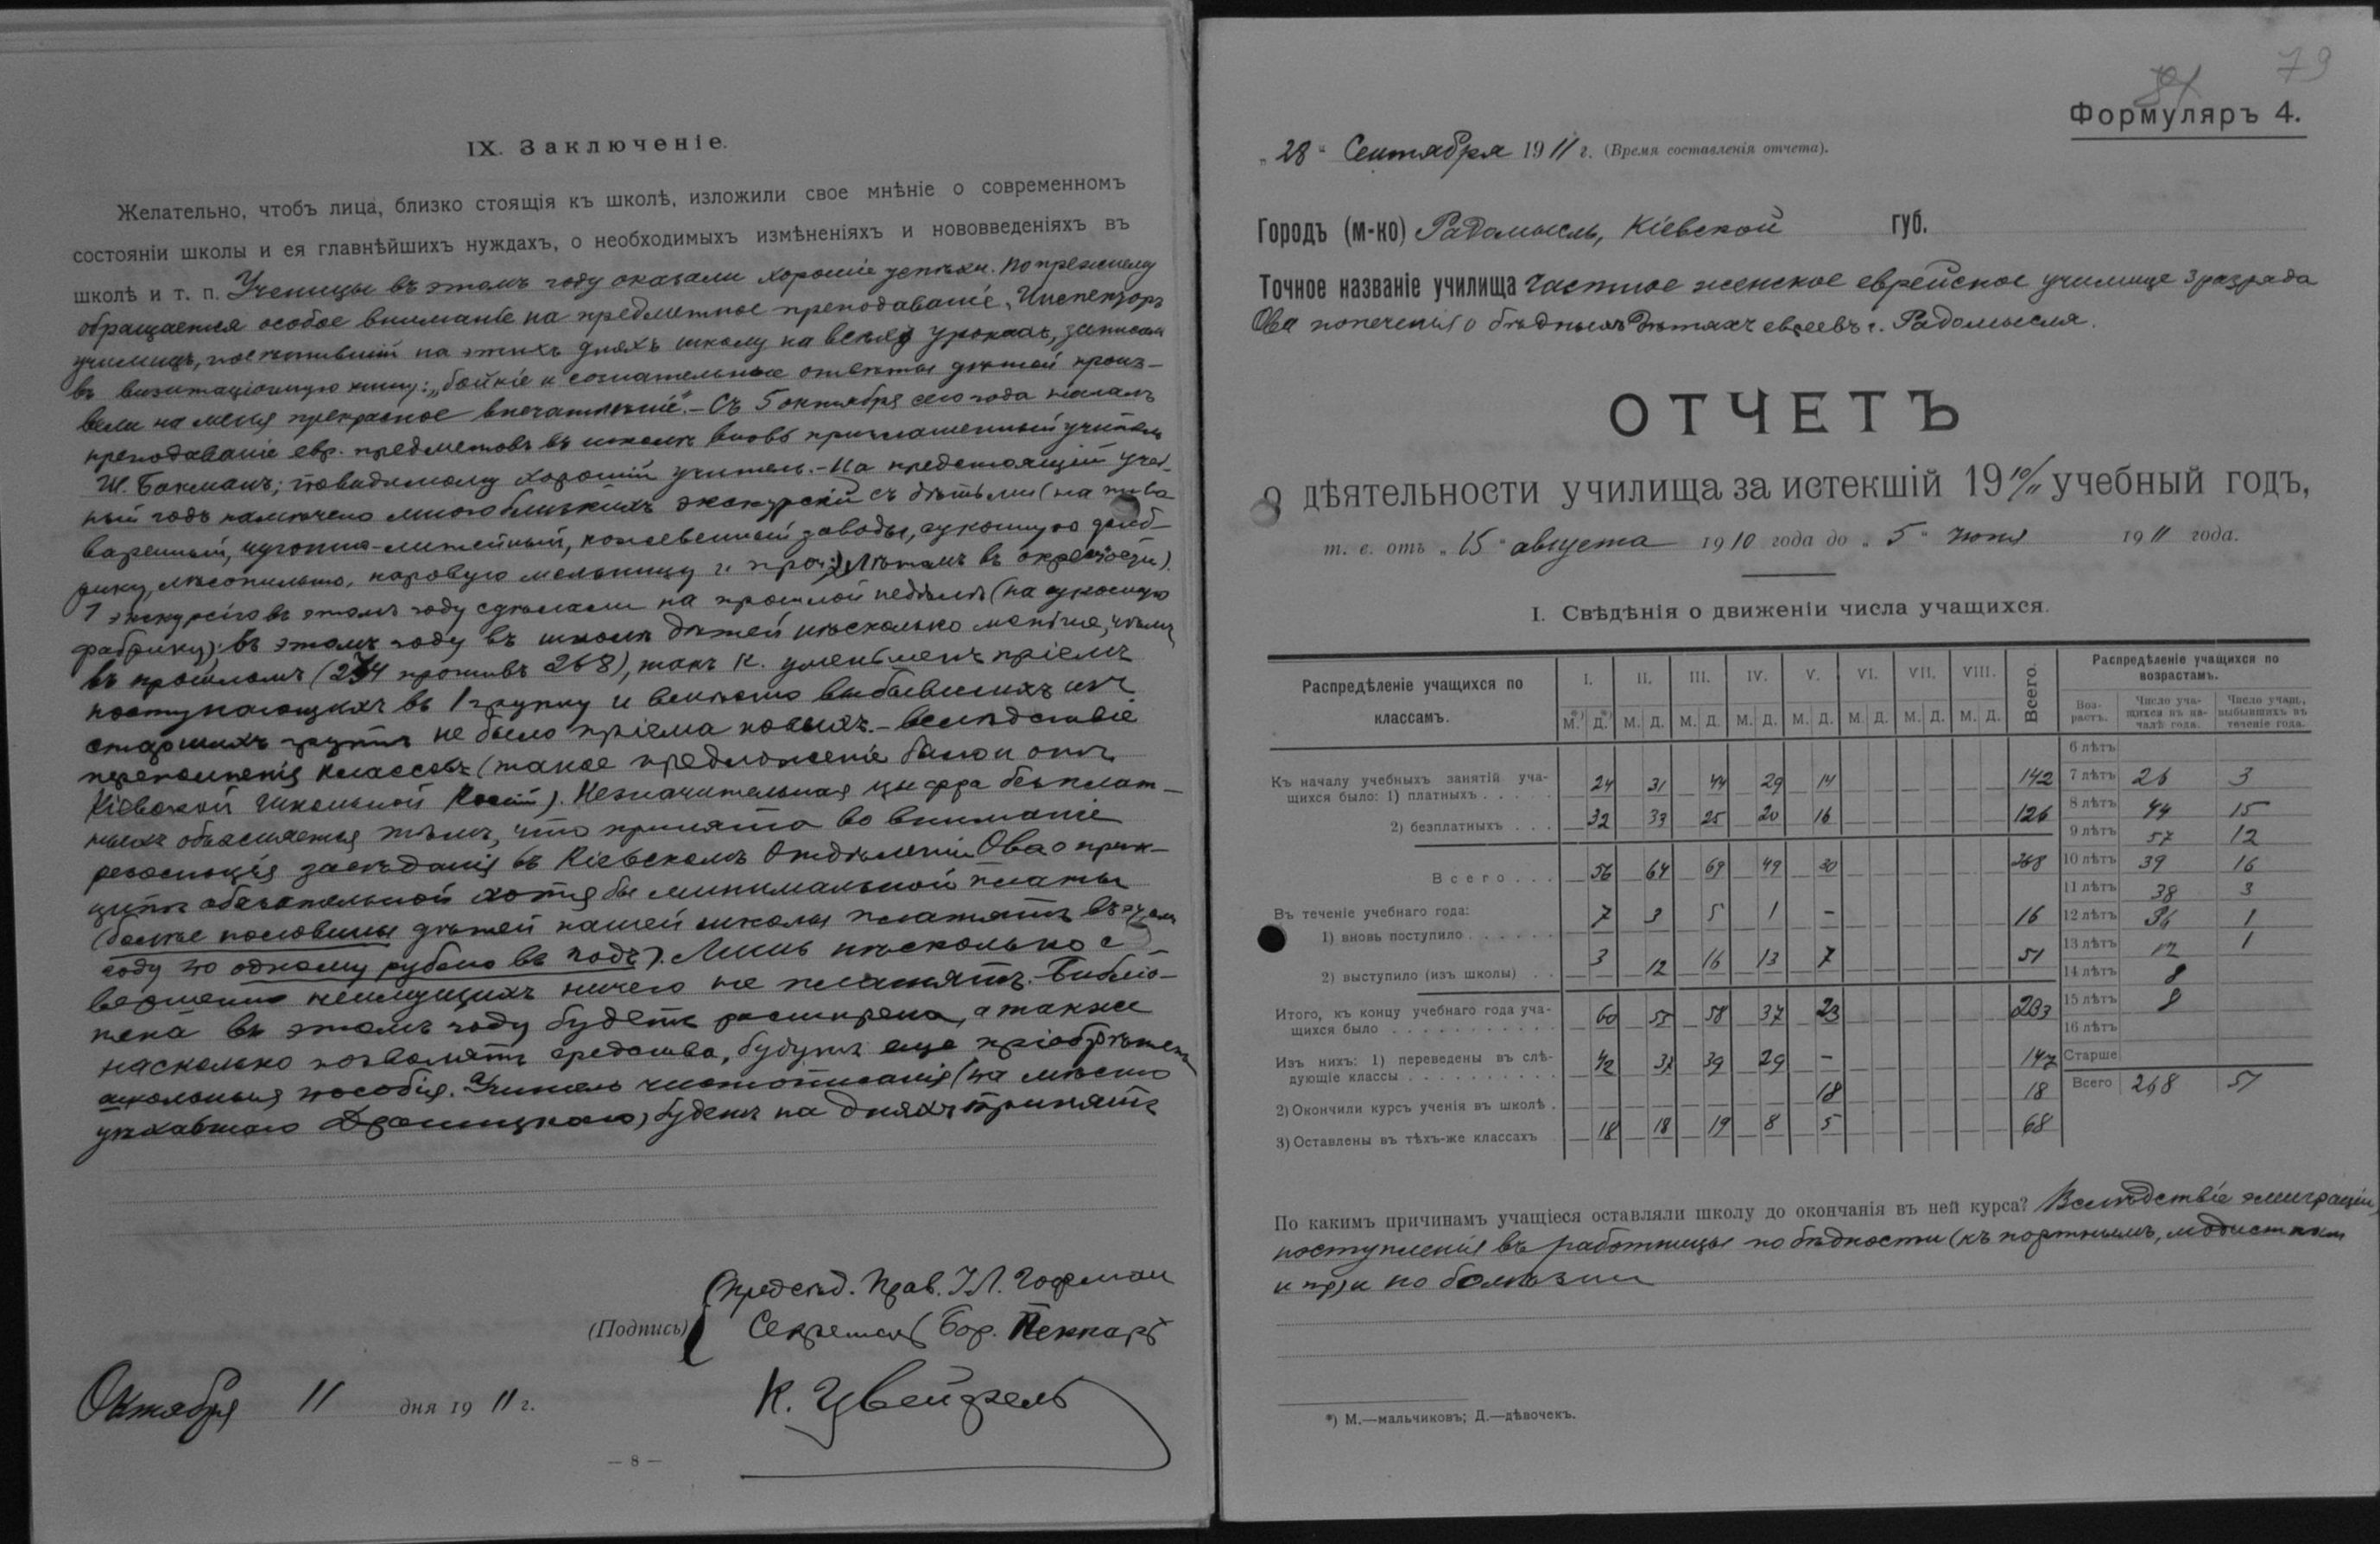 IX. Заключеніе.
Желательно, чтобъ лица, близко стоящія къ школѣ, изложили свое мнѣніе о современномъ
состояніи школы и ея главнѣйшихъ нуждахъ, о необходимыхъ измѣненіяхъ и нововведеніяхъ въ
школѣ и т. п. Ученицы въ этомъ году оказали хорошіе успѣхи. По прежнему
обращается особое вниманіе на предметное преподаваніе. Инспекторъ
училищъ, посѣтившій на этихъ дняхъ школу на всѣхъ урокахъ, записалъ
въ визитаціонную книгу: „бойкіе и сознательные отвѣты дѣтей произ-
вели на меня прекрасное впечатлѣніе". - Съ 5 октября сего года началъ
преподаваніе евр. предметовъ въ школѣ вновь приглашенный учитель
Ш. Бакманъ; повидимому хорошій учитель. - На предстоящій учеб-
ный годъ намѣчено много близкихъ экскурсій съ дѣтьми (на пиво-
варенный, чугунно-литейный, кожевенный заводы, суконную фаб-
рику, лѣсопильню, паровую мельницу и проч. Лѣтомъ въ окрестности).
1 экскурсію въ этомъ году сдѣлали на прошлой недѣлѣ (на суконную
фабрику). Въ этомъ году въ школѣ дѣтей нѣсколько меньше, чѣмъ
въ прошломъ (234 противъ 268), такъ к. уменьшенъ пріемъ
поступающихъ въ 1 группу и вмѣсто выбывшихъ изъ
старшихъ группъ не было пріема новыхъ. - вслѣдствіе
переполненія классовъ (такое предложеніе было и отъ
Кіевской Школьной). Незначительная цифра безплат-
ныхъ объясняется тѣмъ, что принята во вниманіе
резолюція засѣданія въ Кіевскомъ Отдѣленіи Ова о прин-
ципѣ обязательной хотя бы минимальной платы
(болѣе половины дѣтей нашей школы платятъ въ этомъ
году по одному рублю въ годъ). Лишь нѣсколько
неимущихъ ничего не платятъ. Библіо-
тека въ этомъ году будетъ расширена, а также
насколько позволятъ средства, будутъ еще пріобрѣтены
школьныя пособія. Учитель чистописанія (на мѣсто
уѣхавшаго) будетъ на дняхъ принятъ
Предсѣд. Прав. І. Л. Гофман
(Подпись) Секретарь Бор. Пеккаръ
К. Цвейфель
Октября 11 дня 1911 г.
— 8 —
79
Формуляръ 4.
„28" Сентября 1911 г. (Время составленія отчета).
Городъ (м-ко) Радомысль, Кіевской губ.
Точное названіе училища Частное женское еврейское училище 3 разряда
Ова попеченія о бѣдныхъ дѣтяхъ евреевъ г. Радомысля.
ОТЧЕТЪ
О дѣятельности училища за истекшій 1910/11 учебный годъ,
т. е. отъ „15" августа 1910 года до „5" Іюня 1911 года.
I. Свѣдѣнія о движеніи числа учащихся.
Распредѣленіе учащихся по классамъ. I. II. III. IV. V. VI. VII. VIII. Всего.
М.*) Д.*) М. Д. М. Д. М. Д. М. Д. М. Д. М. Д. М. Д.
Къ началу учебныхъ занятій уча-
щихся было: 1) платныхъ . . . . . 24 31 44 29 14 142
2) безплатныхъ . . . 32 33 25 20 16 126
Всего . . . 56 64 69 49 30 268
Въ теченіе учебнаго года:
1) вновь поступило . . . . . . 7 3 5 1 - 16
2) выступило (изъ школы) . . 3 12 16 13 7 51
Итого, къ концу учебнаго года уча-
щихся было . . . . . . . . . . . 60 55 58 37 23 233
Изъ нихъ: 1) переведены въ слѣ-
дующіе классы . . . . . . . . . . 42 37 39 29 - 147
2) Окончили курсъ ученія въ школѣ . 18 18
3) Оставлены въ тѣхъ-же классахъ 18 18 19 8 5 68
Распредѣленіе учащихся по
возрастамъ.
Воз-растъ. Число уча-щихся въ на-чалѣ года. Число учащ., выбывшихъ въ теченіе года.
6 лѣтъ
7 лѣтъ 26 3
8 лѣтъ 44 15
9 лѣтъ 57 12
10 лѣтъ 39 16
11 лѣтъ 38 3
12 лѣтъ 36 1
13 лѣтъ 12 1
14 лѣтъ 8
15 лѣтъ 8
16 лѣтъ
Старше
Всего 268 51
По какимъ причинамъ учащіеся оставляли школу до окончанія въ ней курса? Вслѣдствіе эмиграціи,
поступленія въ работницы по бѣдности (къ портнымъ, модисткам
и пр.) и по болѣзни
*) М.—мальчиковъ; Д.—дѣвочекъ.